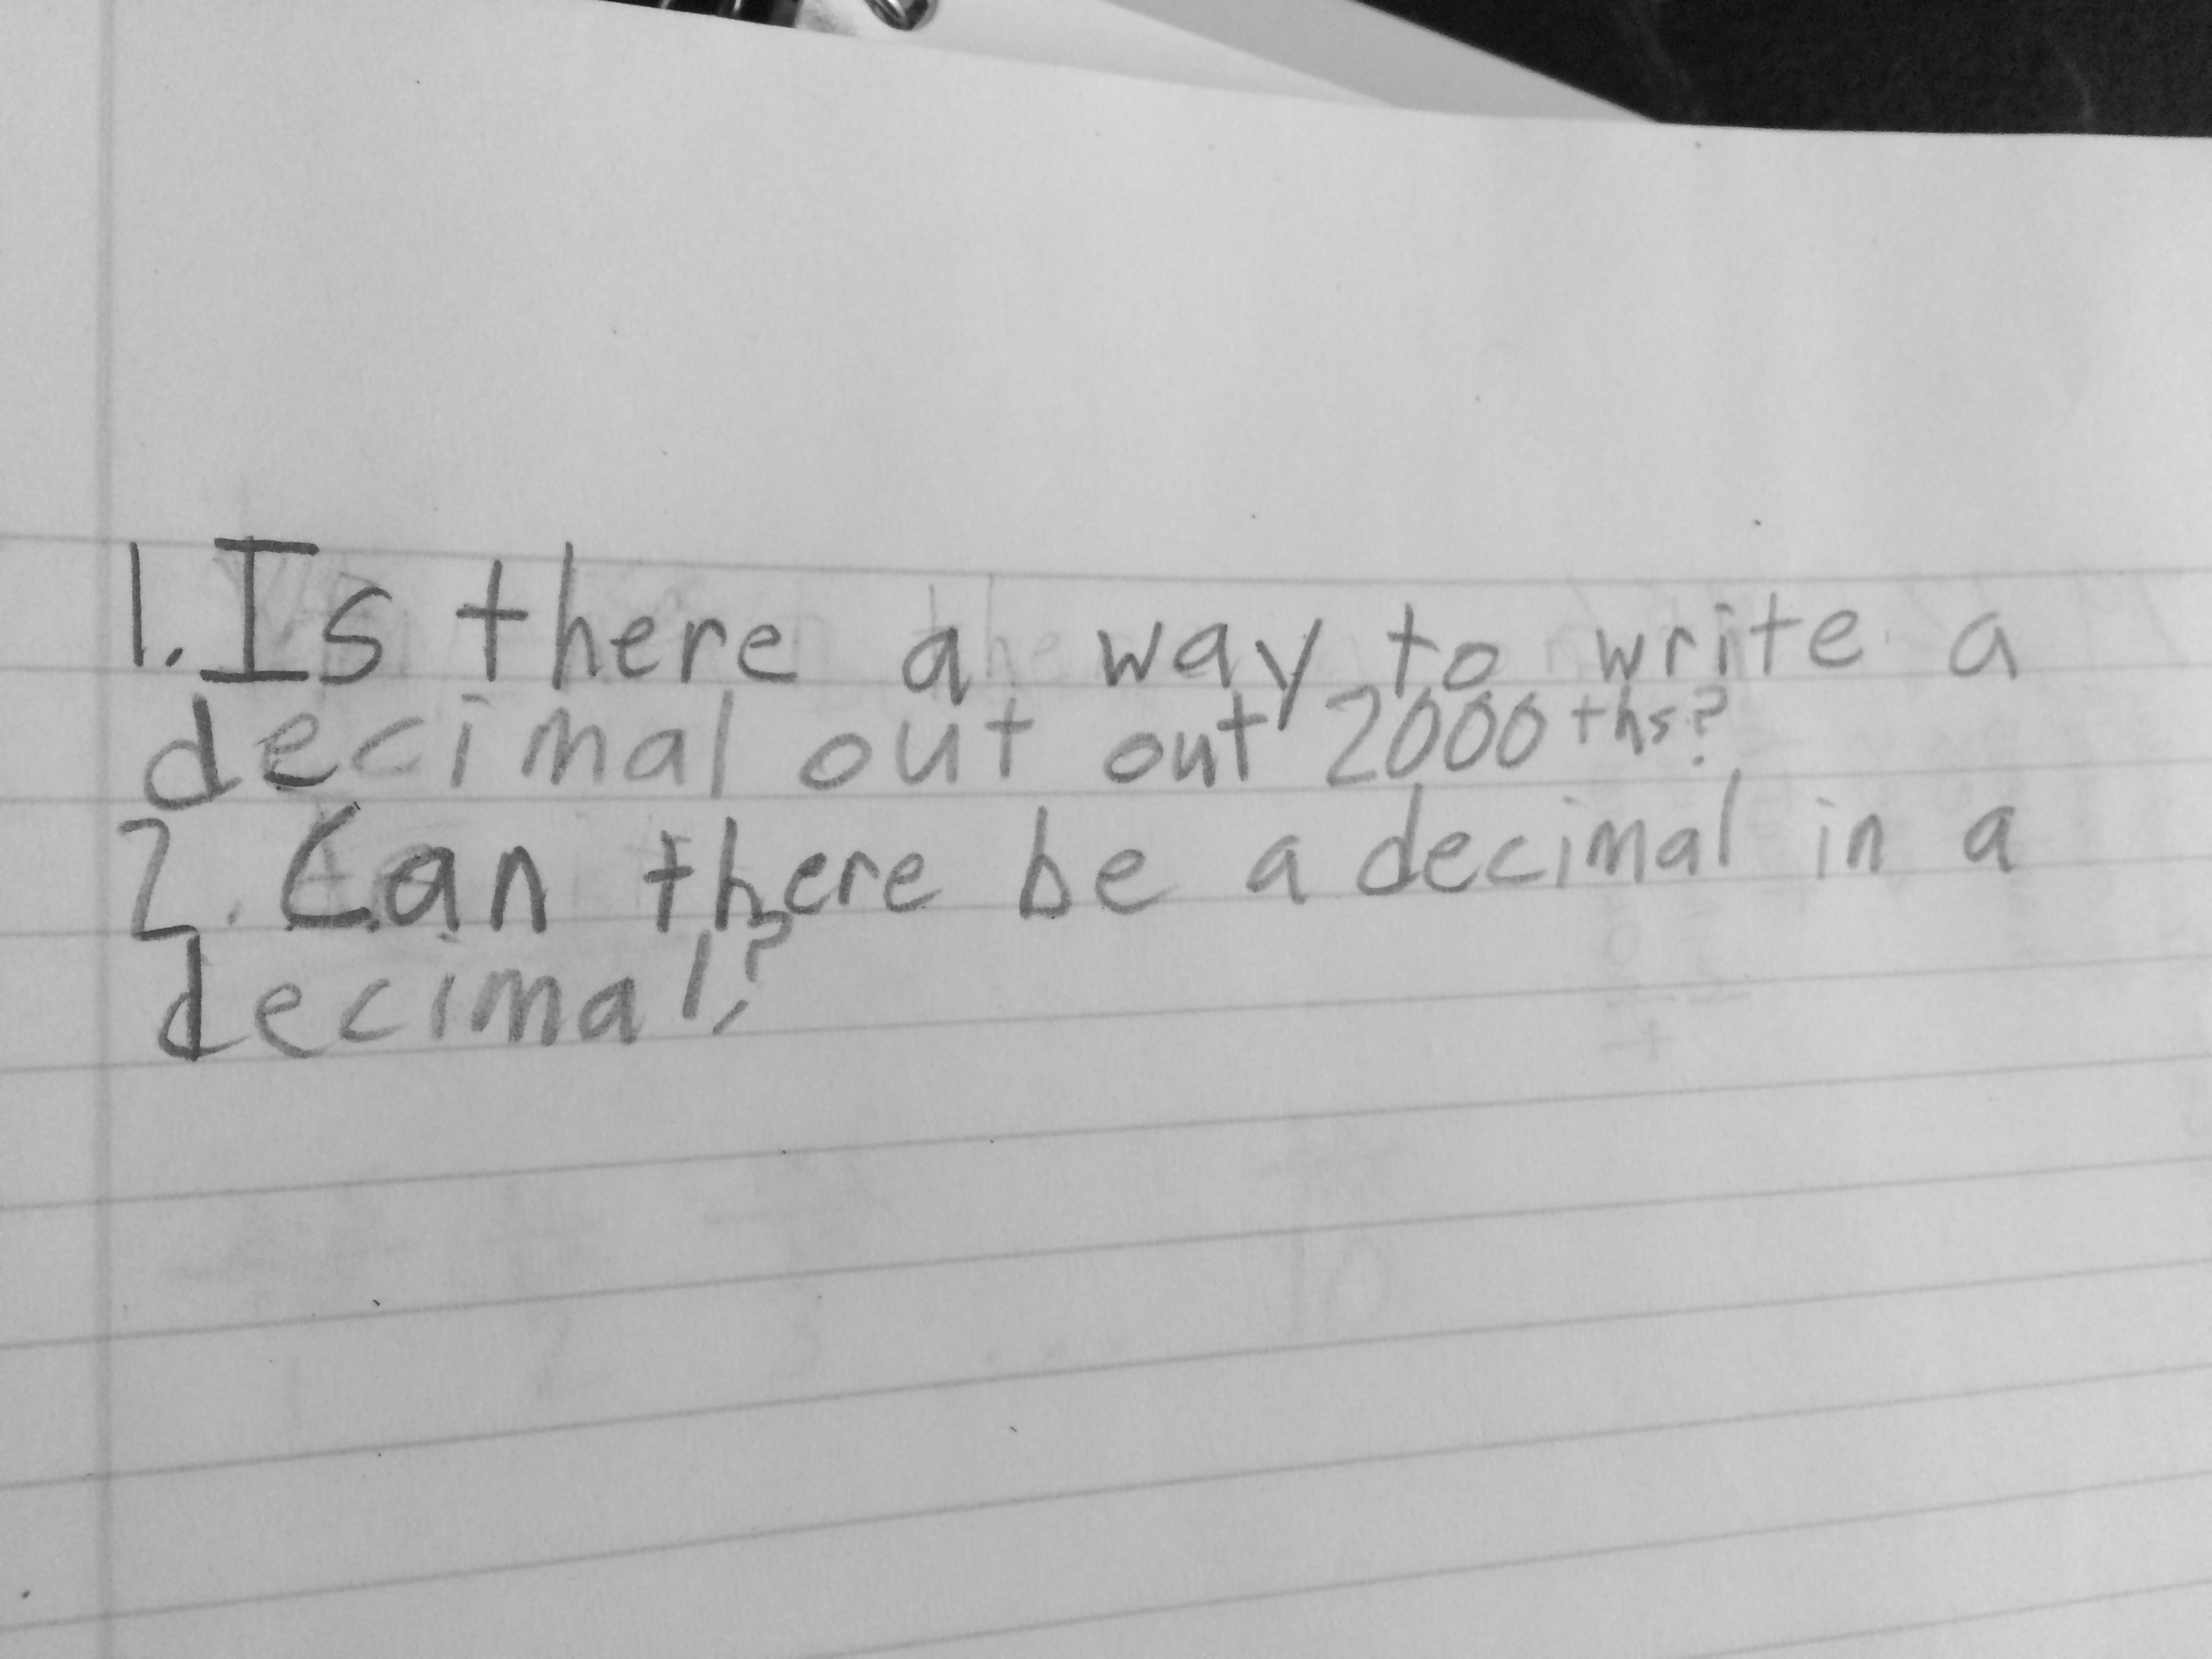 1. Is there a way to write a
decimal out out 2000ths?
2. Can there be a decimal in a
decimal?